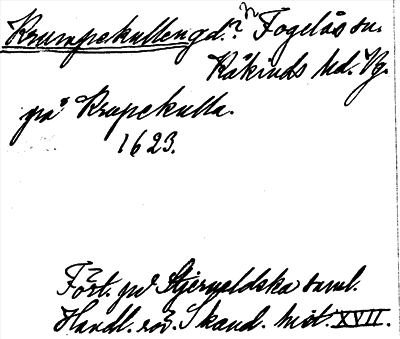 Krumpekullen gd.? Fogelås sn.
Kåkinds hd. Vg.
på Krapekulla.
1623.
Fört. på Stjerneldska saml.
Handl. rör. Skand. hist. XVII.